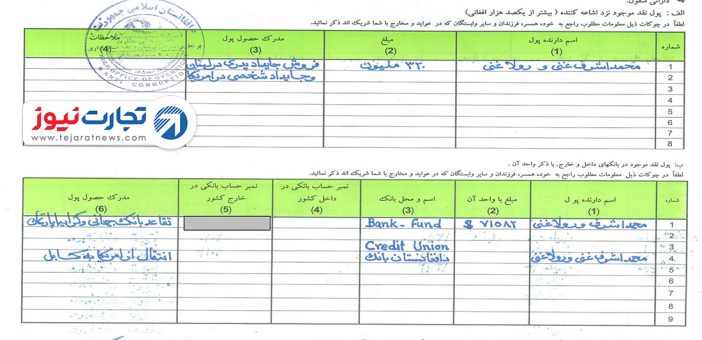 الف : پول نقد موجود نزد اشاعه کننده ( بیشتر از یکصد هزار افغانی )
لطفاً در چوکات ذیل معلومات مطلوب راجع به خود، همسر، فرزندان و سایر وابستگان که در عواید و مخارج با شما شریک اند ذکر نمائید.
شماره
اسم دارنده پول
(1)
مبلغ
(2)
مدرک حصول پول
(3)
ملاحظات
(4)
1 محمد اشرف غنی و رولا غنی ۳۲۰ ملیون فروش جایداد پدری در لبنان
2 و جایداد شخصی در امریکا
3
4
5
6
7
8
تجارت نیوز
www.tejaratnews.com
ب: پول نقد موجود در بانکهای داخل و خارج, با ذکر واحد آن .
لطفاً در چوکات ذیل معلومات مطلوب راجع به خود، همسر، فرزندان و سایر وابستگان که در عواید و مخارج با شما شریک اند ذکر نمائید.
شماره
اسم دارنده پول
(1)
مبلغ با واحد آن
(2)
اسم و محل بانک
(3)
نمبر حساب بانکی در داخل کشور
(4)
نمبر حساب بانکی در خارج کشور
(5)
مدرک حصول پول
(6)
1 محمد اشرف و رولا غنی $ ۷۱۵۸۲ Bank-Fund تقاعد بانک جهانی و کرایه اپارتمان
2
3 Credit Union
4 محمد اشرف غنی و رولا غنی د افغانستان بانک انتقال از امریکا به کابل
5
6
7
8
9